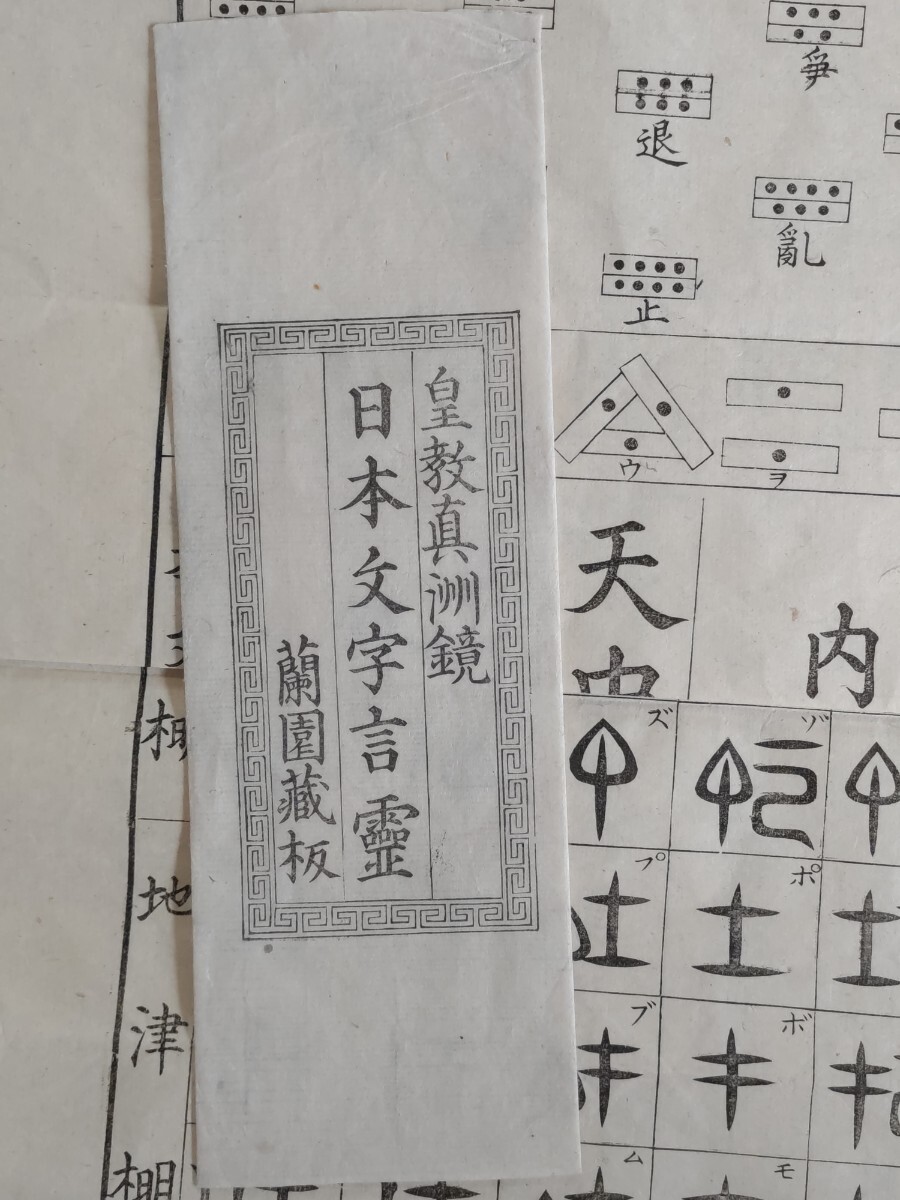 皇教真洲鏡
日本文字言靈
蘭園藏板
爭
退
亂
止
ウ
ヲ
天中
内
ズ
ゾ
プ
ポ
ブ
ボ
ム
モ
棚
地
津
棚